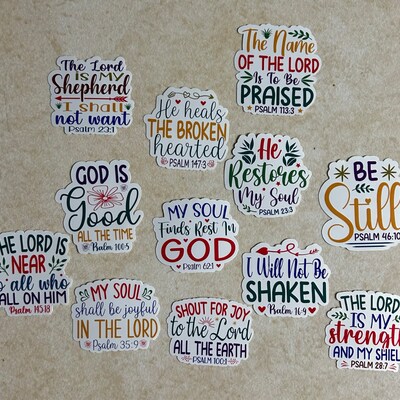 The Lord
IS MY
Shepherd
I shall
not want
Psalm 23:1
He heals
THE BROKEN
hearted
PSALM 147:3
The Name
OF THE LORD
Is To Be
PRAISED
PSALM 113:3
GOD IS
Good
ALL THE TIME
Psalm 100:5
MY SOUL
Finds Rest In
GOD
Psalm 62:1
He
Restores
My Soul
PSALM 23:3
BE
Still
PSALM 46:10
THE LORD IS
NEAR
to all who
CALL ON HIM
PSALM 145:18
MY SOUL
shall be joyful
IN THE LORD
Psalm 35:9
SHOUT FOR JOY
to the Lord
ALL THE EARTH
PSALM 100:1
I Will Not Be
SHAKEN
Psalm 16:9
THE LORD
IS MY
strength
AND MY SHIEL
PSALM 28:7